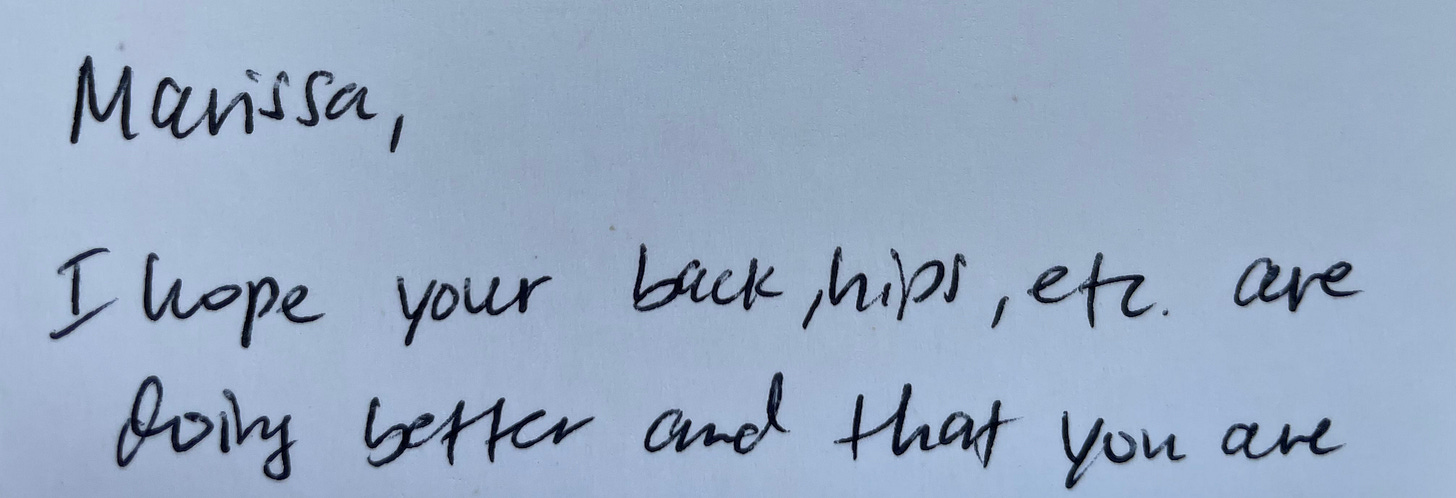 Marissa,
I hope your back, hips, etc. are
doing better and that you are